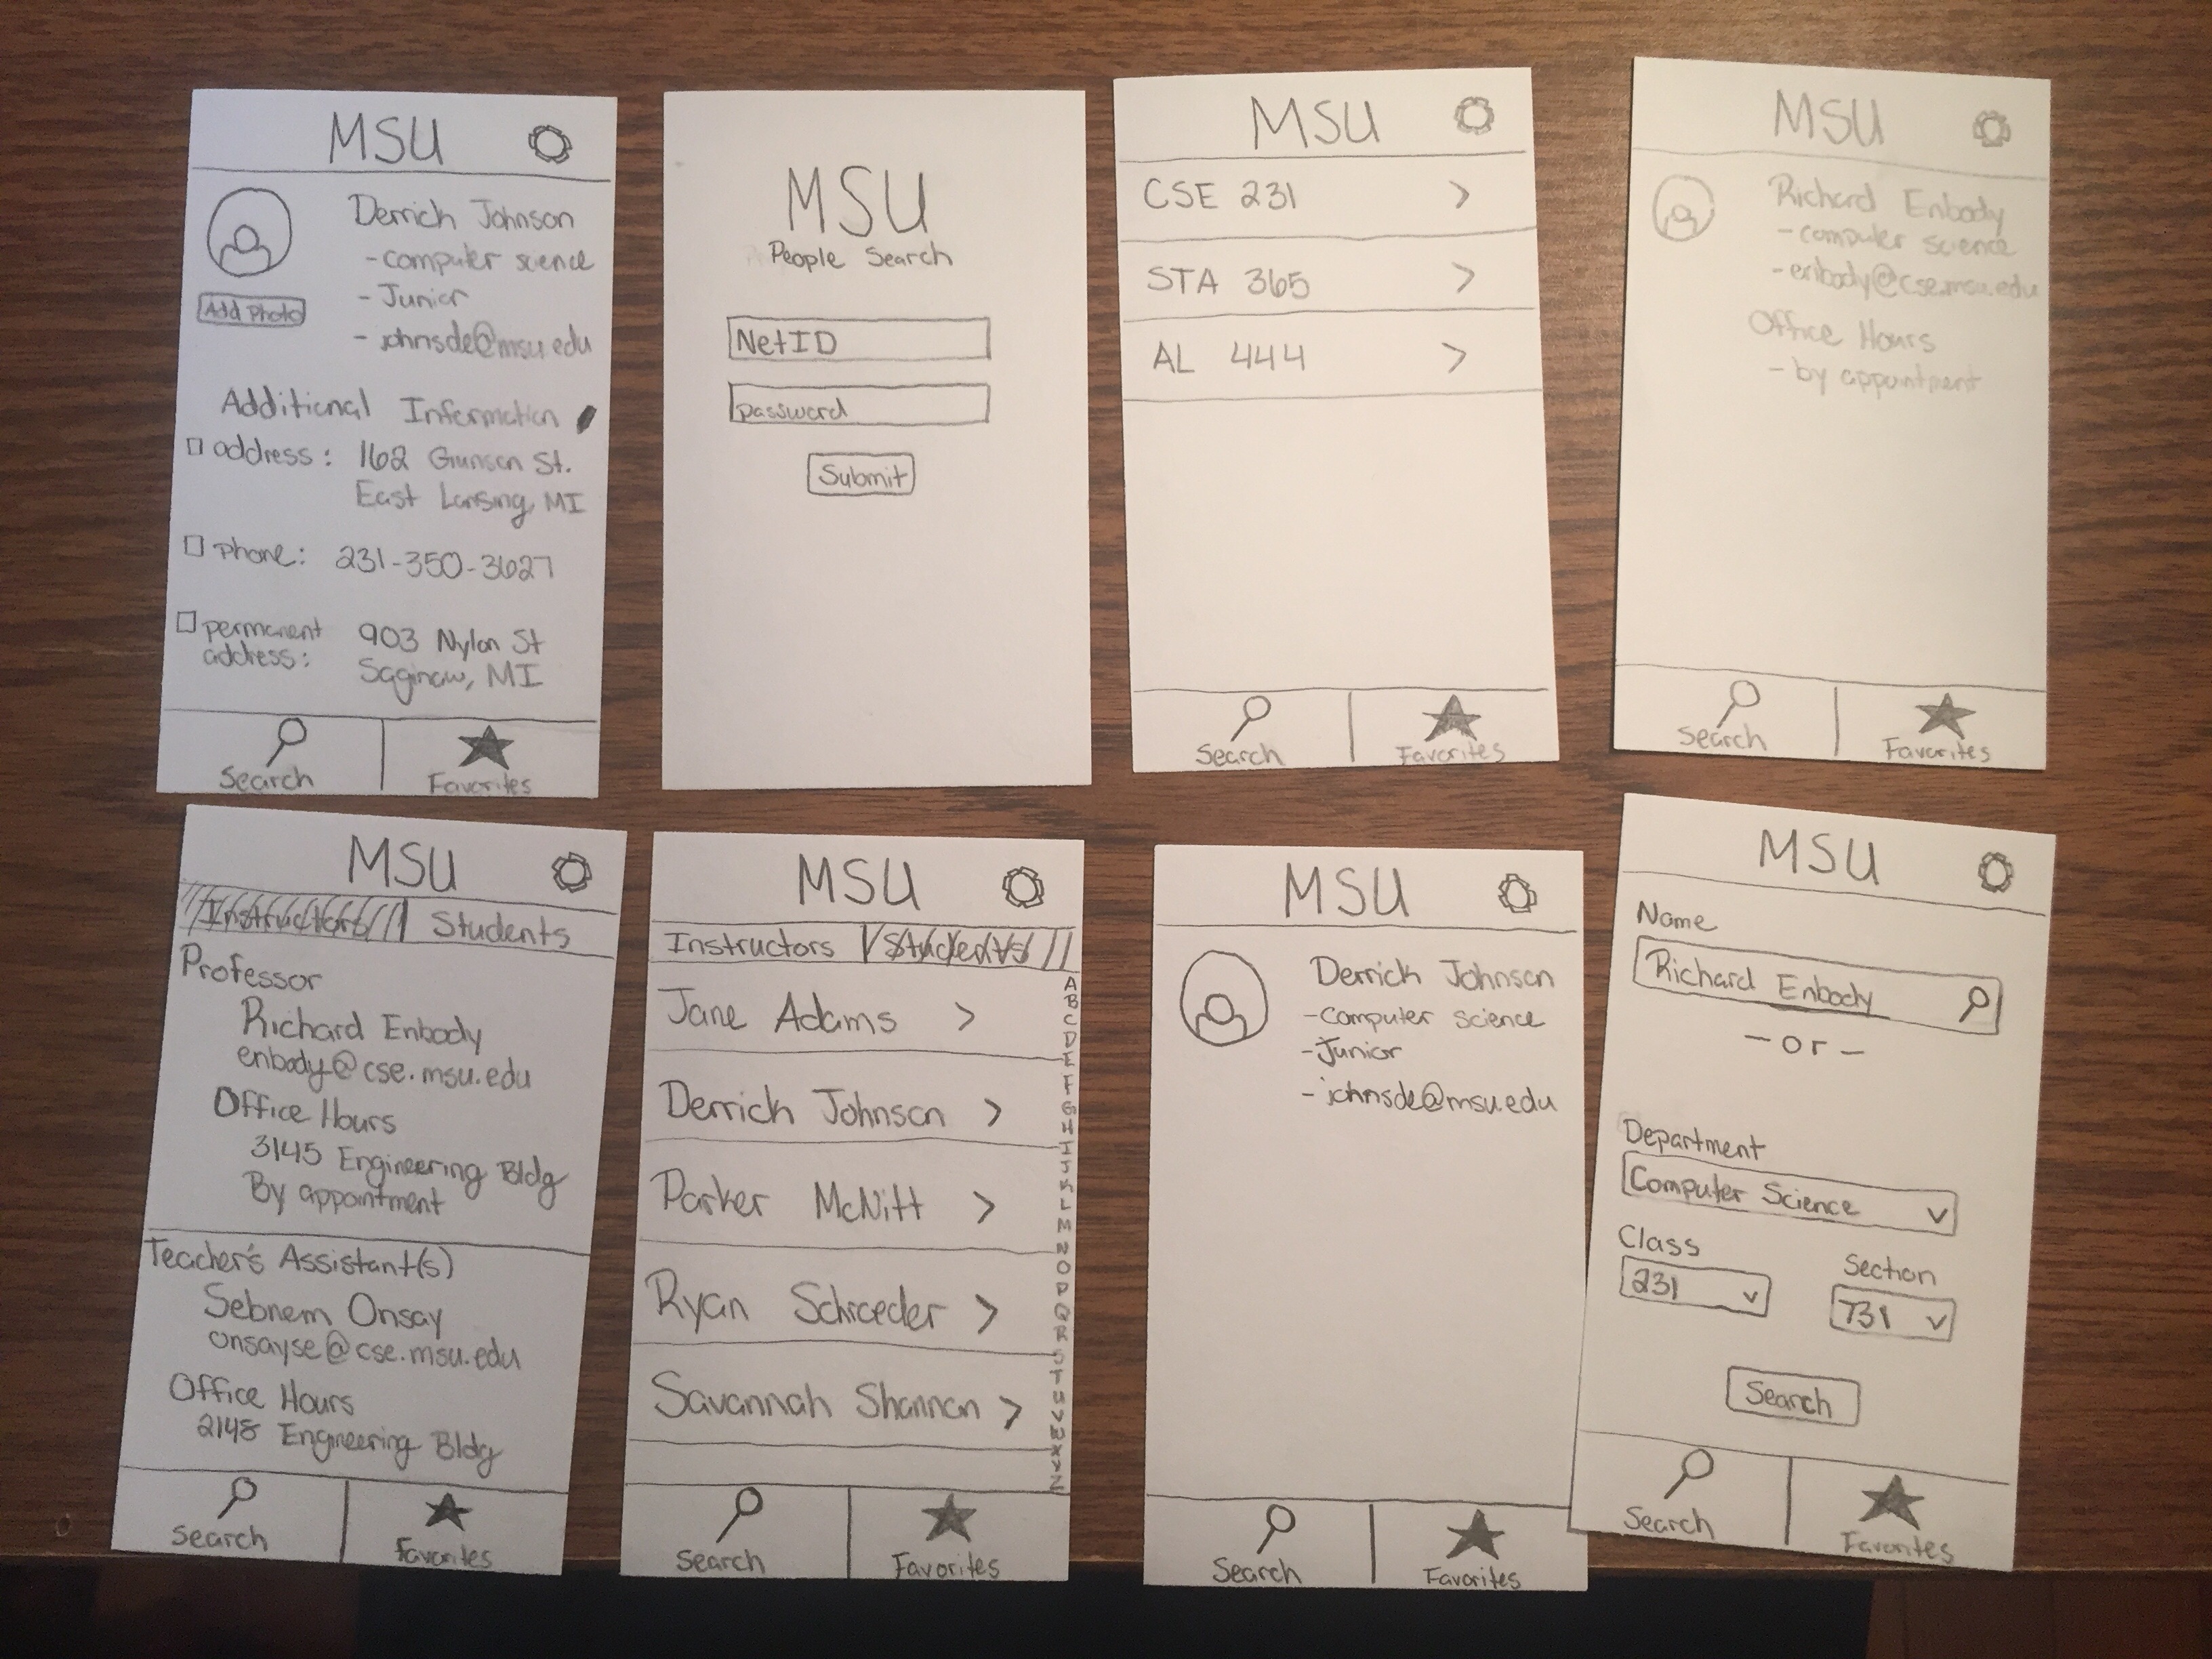 MSU
Derrick Johnson
- computer science
- Junior
- johnsde@msu.edu
Add Photo
Additional Information
address: 162 Gunson St.
East Lansing, MI
Phone: 231-350-3627
permanent address: 903 Nylon St
Saginaw, MI
Search
Favorites
MSU
People Search
NetID
password
Submit
MSU
CSE 231 >
STA 365 >
AL 444 >
Search
Favorites
MSU
Richard Enbody
- computer science
- enbody@cse.msu.edu
Office Hours
- by appointment
Search
Favorites
MSU
Instructors Students
Professor
Richard Enbody
enbody@cse.msu.edu
Office Hours
3145 Engineering Bldg
By appointment
Teacher's Assistant(s)
Sebnem Onsay
onsayse@cse.msu.edu
Office Hours
2148 Engineering Bldg
Search
Favorites
MSU
Instructors Students
Jane Adams >
Derrick Johnson >
Parker McNitt >
Ryan Schroeder >
Savannah Shannon >
A
B
C
D
E
F
G
H
I
J
K
L
M
N
O
P
Q
R
S
T
U
V
W
X
Y
Z
Search
Favorites
MSU
Derrick Johnson
- computer science
- Junior
- johnsde@msu.edu
Search
Favorites
MSU
Name
Richard Enbody
- or -
Department
Computer Science
Class
231
Section
731
Search
Search
Favorites